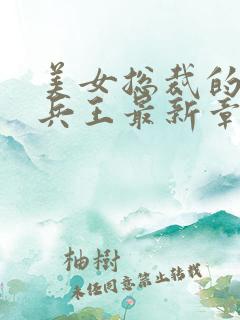 美女总裁的
兵王最新章
柚樹
未经同意禁止转载